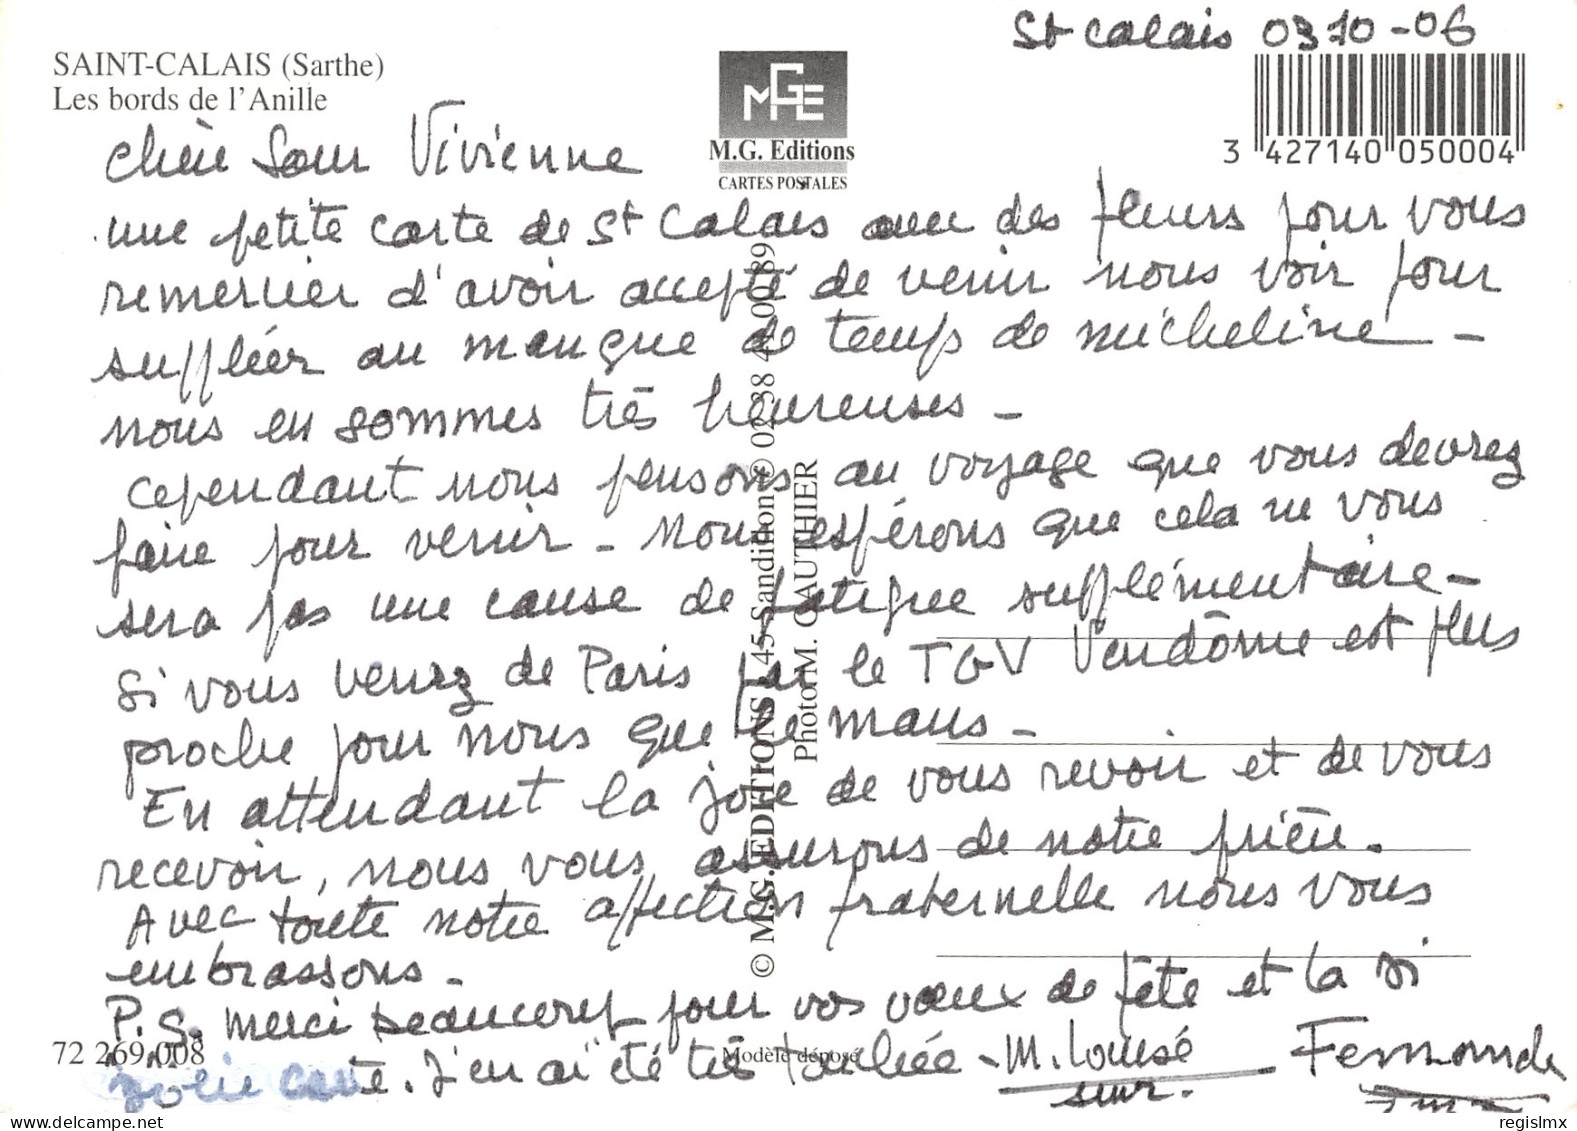 St Calais 03 10 - 06
SAINT-CALAIS (Sarthe)
Les bords de l'Anille
MGE
M.G. Editions
CARTES POSTALES
3 427140 050004
chère Sœur Vivienne
une petite carte de St Calais avec des fleurs pour vous
remercier d'avoir accepté de venir nous voir pour
suppléer au manque de temps de Micheline -
nous en sommes très heureuses -
cependant nous pensons au voyage que vous devrez
faire pour venir - Nous espérons que cela ne vous
sera pas une cause de fatigue supplémentaire -
Si vous venez de Paris par le TGV Vendôme est plus
proche pour nous que Le Mans -
En attendant la joie de vous revoir et de vous
recevoir, nous vous assurons de notre prière.
Avec toute notre affection fraternelle nous vous
embrassons -
P.S. Merci beaucoup pour vos vœux de fête et la si
jolie carte. J'en ai été très touchée - M. Louise Fernande
sœur.
© M.G. EDITIONS - 45 Sandillon ✆ 02 38 41 00 89
Photo M. GAUTHIER
72 269 008
Modèle déposé
regisImx